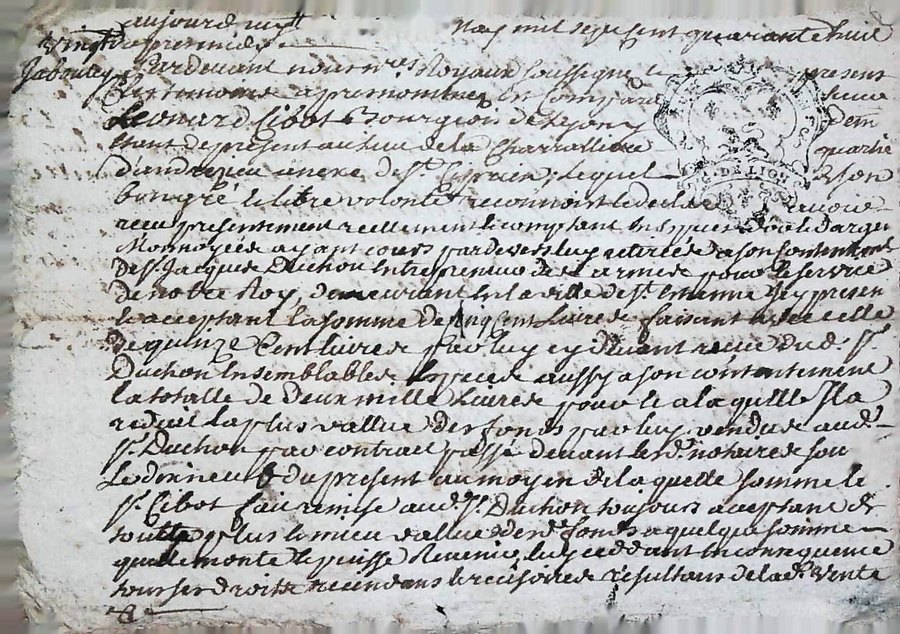 aujourd'huy
vingt premier may mil sept cent quarante huit
Pardevant nous nores Royaux soussigné le present
en Compard
Leonard Cibot Bourgeois de Lyon
de present au lieu de la Charrolliere
d'andrezieu anexe de St. Ciprien, lequel de son
bon gré & libre volonté reconnoit & declare avoir
receu presentement reellement & comptant en especes d'or & d'argen
Monnoyées ayant cours par devers luy retirées a son contentement
de Sr. Jacques Duchon Entrepreneur des armes pour le service
de notre Roy, demeurant en la ville de St. Etienne icy presen
& acceptant la somme de cinq cent Livres faisant avec celle
de quinze Cent livres par luy cy devant receue dud. Sr.
Duchon en semblables especes aussy a son contentement
la totalle de deux mille Livres pour & a laquelle Il a
reduit la plus vallue des fonds par luy vendus aud.
Sr. Duchon par contract passé devant led. notaire
Le du present au moyen de laquelle somme le
Sr. Cibot fait remise aud. Sr. Duchon toujours acceptant de
toutte plus & mieu vallue desd. fonds a quelque somme
qu'elle monte & puisse Revenir, luy ceddant en consequence
tous ses droits rescindans & rescisoires resultans de lad. vente
DE LION